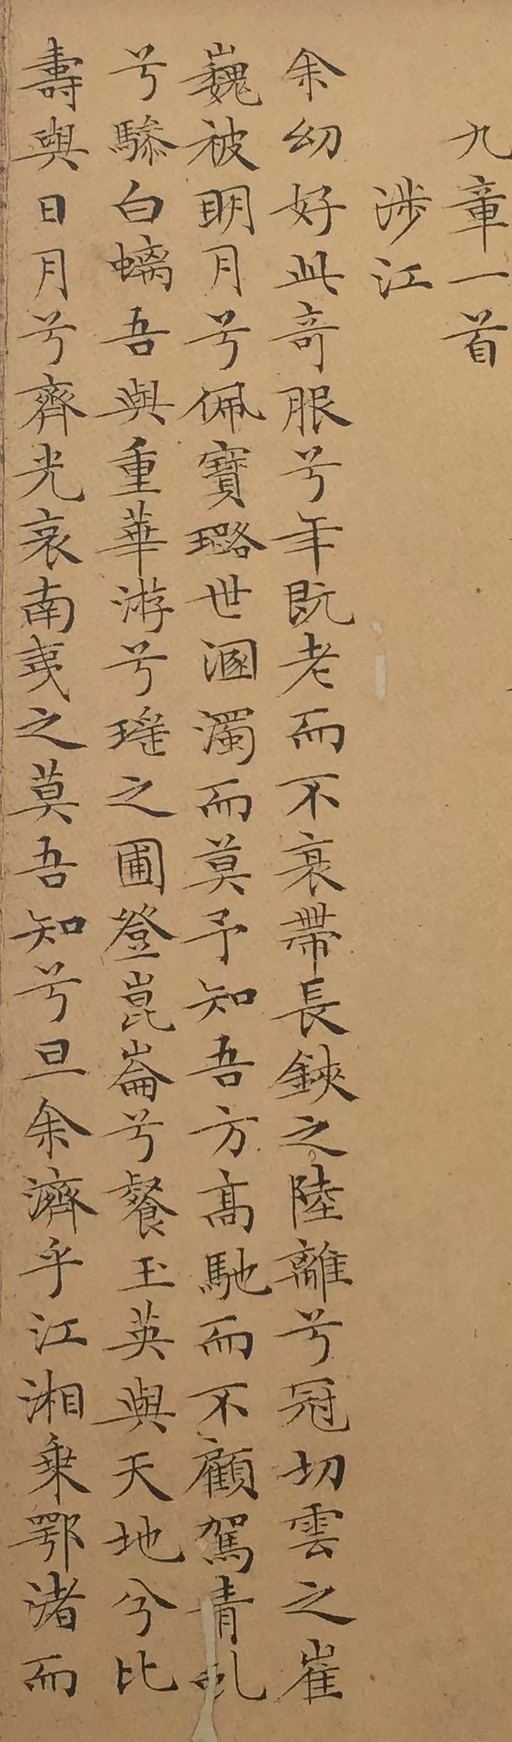 九章一首
涉江
余幼好此奇服兮年既老而不衰帶長鋏之陸離兮冠切雲之崔
巍被明月兮佩寶璐世溷濁而莫予知吾方高馳而不顧駕青虬
兮驂白螭吾與重華游兮瑤之圃登崑崙兮餐玉英與天地兮比
壽與日月兮齊光哀南夷之莫吾知兮旦余濟乎江湘乘鄂渚而